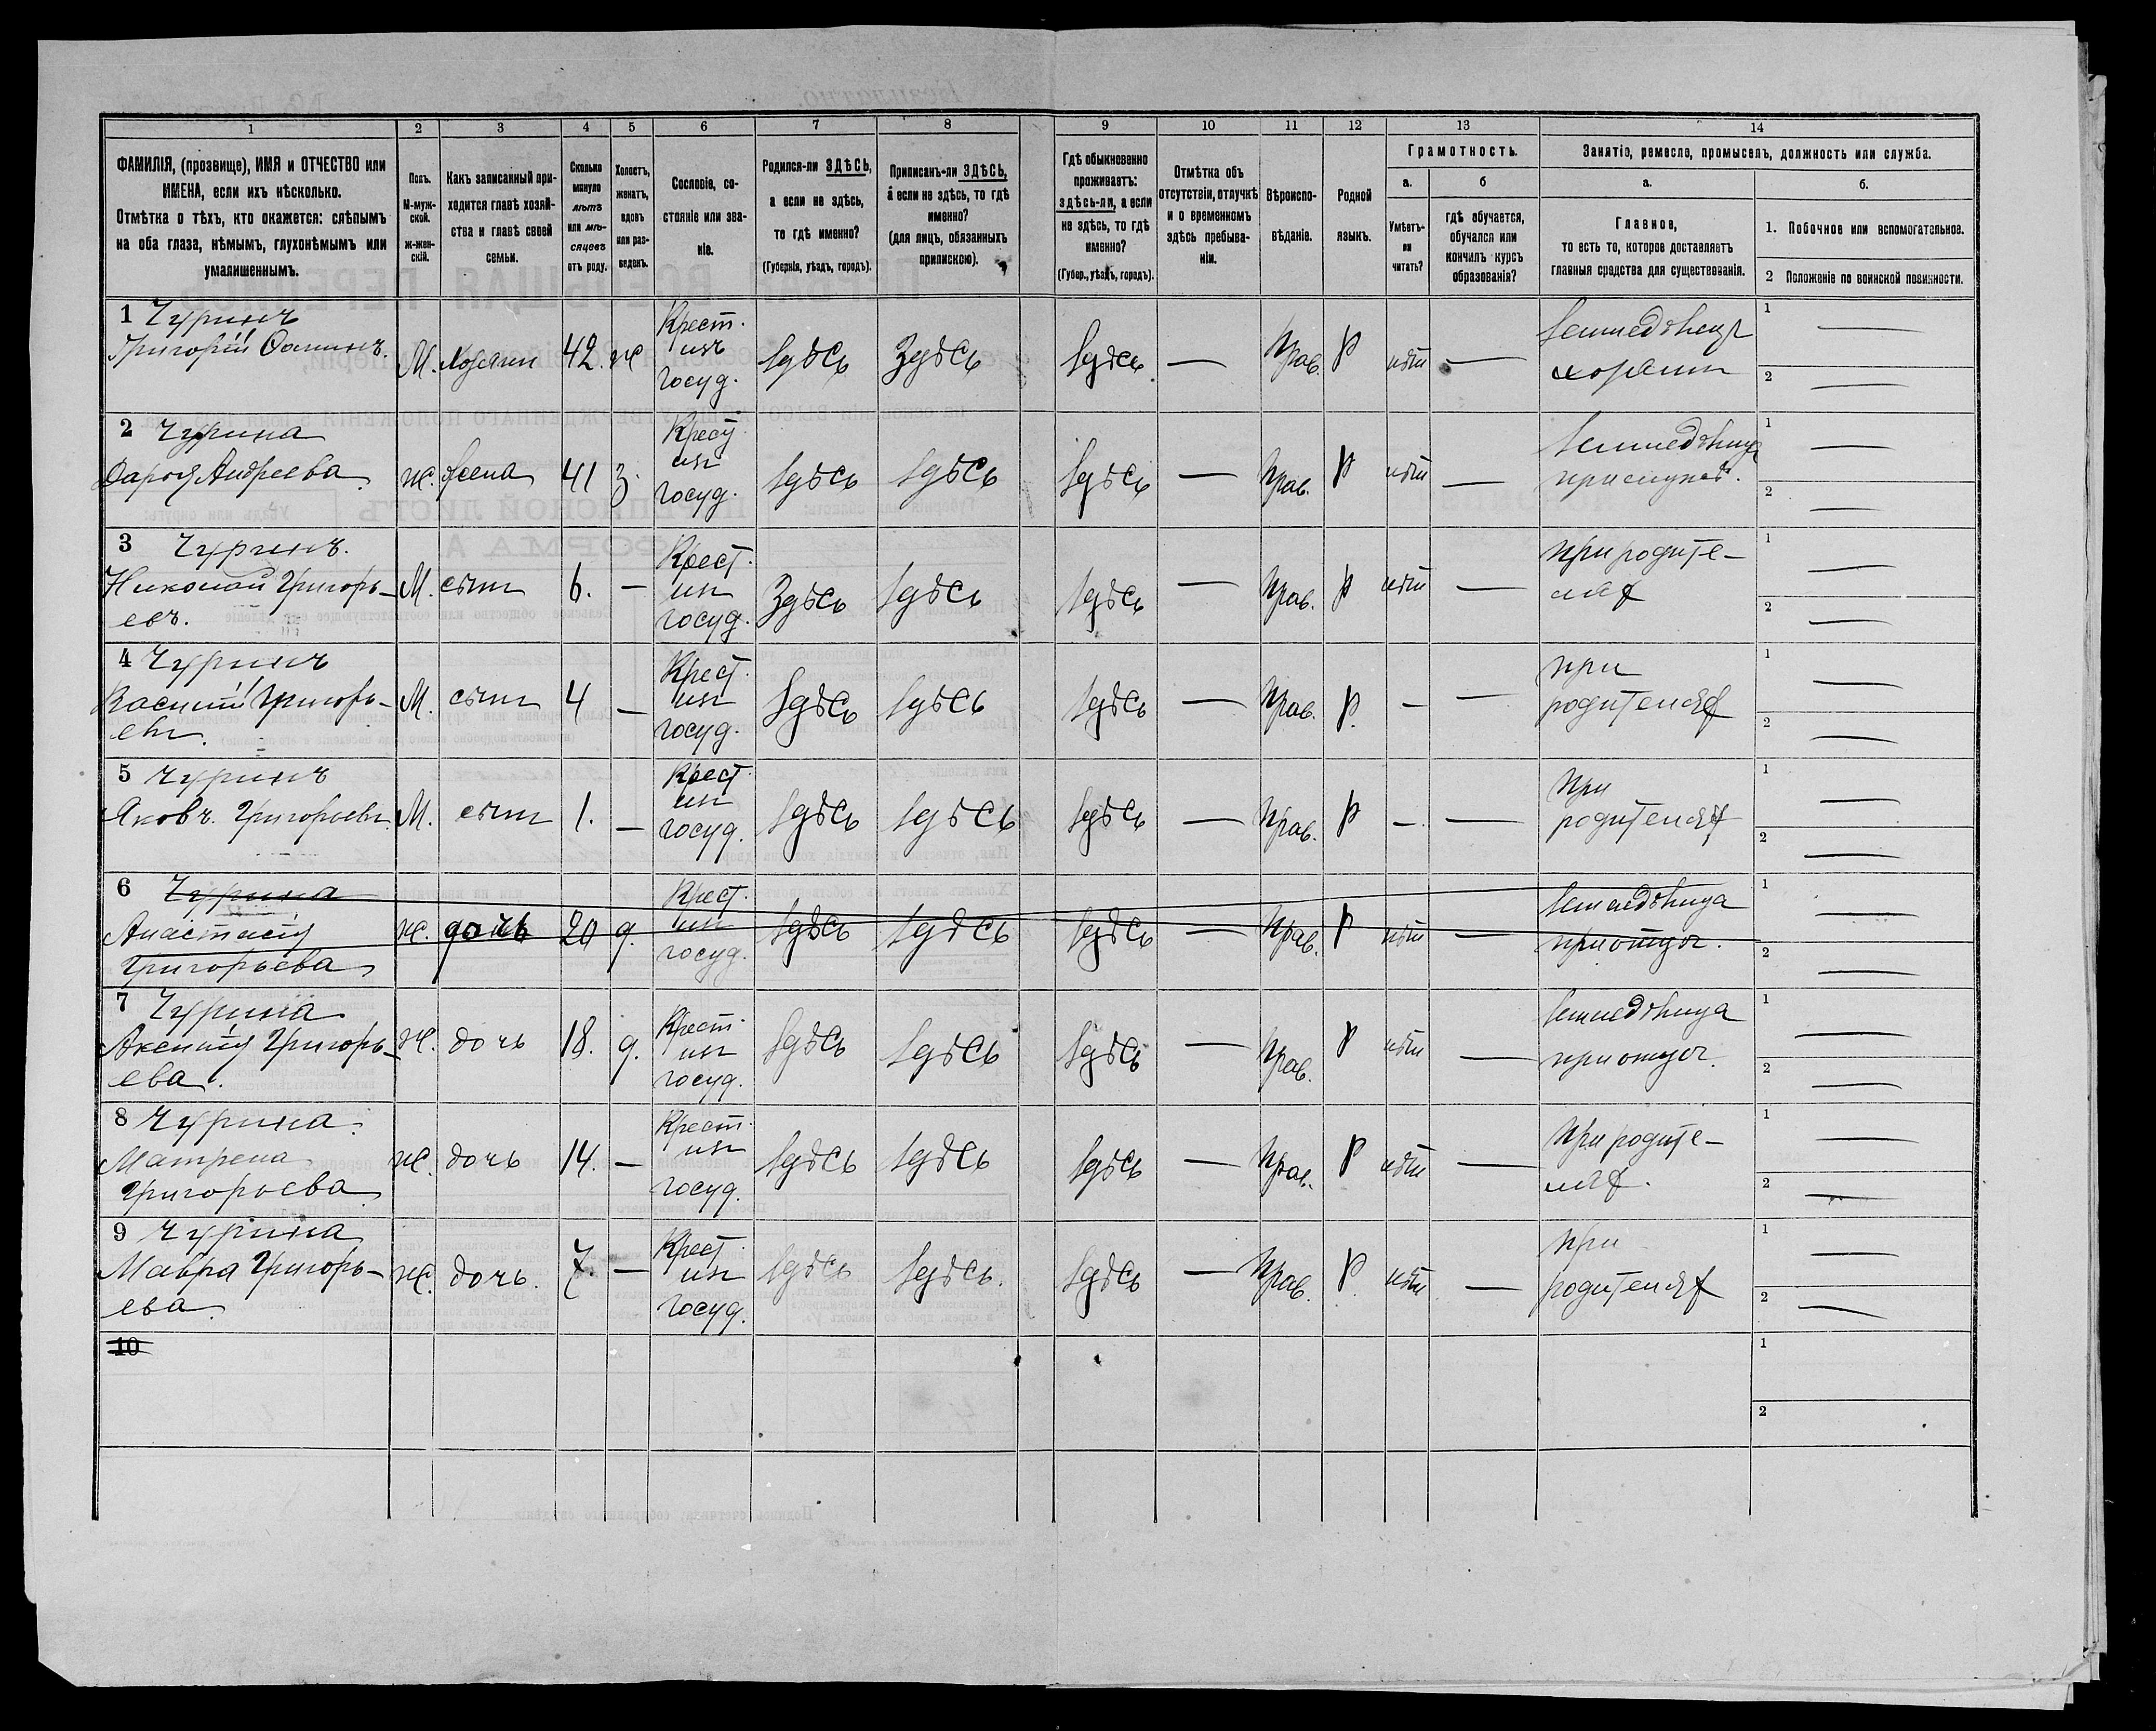 1 2 3 4 5 6 7 8 9 10 11 12 13 14
ФАМИЛІЯ, (прозвище), ИМЯ и ОТЧЕСТВО или
ИМЕНА, если ихъ нѣсколько.
Отмѣтка о тѣхъ, кто окажется: слѣпымъ
на оба глаза, нѣмымъ, глухонѣмымъ или
умалишеннымъ.
Полъ.
М-муж-
ской.
ж-жен-
скій.
Какъ записанный при-
ходится главѣ хозяй-
ства и главѣ своей
семьи.
Сколько
минуло
лѣтъ
или мѣ-
сяцевъ
отъ роду.
Холостъ,
женатъ,
вдовъ
или раз-
веденъ.
Сословіе, со-
стояніе или зва-
ніе.
Родился-ли ЗДѢСЬ,
а если не здѣсь,
то гдѣ именно?
(Губернія, уѣздъ, городъ).
Приписанъ-ли ЗДѢСЬ,
а если не здѣсь, то гдѣ
именно?
(для лицъ, обязанныхъ
припискою).
Гдѣ обыкновенно
проживаетъ:
здѣсь-ли, а если
не здѣсь, то гдѣ
именно?
(Губер., уѣздъ, городъ).
Отмѣтка объ
отсутствіи, отлучкѣ
и о временномъ
здѣсь пребыва-
ніи.
Вѣроиспо-
вѣданіе.
Родной
языкъ.
Грамотность.
а.
Умѣетъ-
ли
читать?
б
гдѣ обучается,
обучался или
кончилъ курсъ
образованія?
Занятіе, ремесло, промыселъ, должность или служба.
а.
Главное,
то есть то, которое доставляетъ
главныя средства для существованія.
б.
1. Побочное или вспомогательное.
2 Положеніе по воинской повинности.
1 Чуринъ
Григорій Фоминъ.
М. Хозяин 42. ж
Крест.
изъ
госуд.
Здѣсь Здѣсь Здѣсь — Прав. Р нѣт —
Земледѣлец
хозяин
1 —
2 —
2 Чурина
Дарья Андреева
ж. жена 41 з.
Крест
из
госуд.
Здѣсь Здѣсь Здѣсь — Прав. Р нѣт —
1 —
2 —
3 Чуринъ.
Николай Григорь-
евъ.
М. сын 6. —
Крест.
из
госуд.
Здѣсь Здѣсь Здѣсь — Прав. Р нѣт —
При родите-
лях
1 —
2 —
4 Чуринъ
Василий Григорь-
евъ.
М. сын 4 —
Крест.
из
госуд.
Здѣсь Здѣсь Здѣсь — Прав. Р. — —
при
родителях
1 —
2 —
5 Чуринъ
Яковъ Григорьевъ.
М. сын 1. —
Крест.
из
госуд.
Здѣсь Здѣсь Здѣсь — Прав. Р — —
При
родителях
1 —
2 —
6 Чурина
Анастасия
Григорьева
ж. дочь 20 д.
Крест.
из
госуд.
Здѣсь Здѣсь Здѣсь — Прав. Р нѣт —
Земледѣлица
при отцѣ.
1 —
2 —
7 Чурина
Аксиния Григорь-
ева.
ж. дочь 18. д.
Крест.
из
госуд.
Здѣсь Здѣсь Здѣсь — Прав. Р нѣт —
Земледѣлица
при отцѣ.
1 —
2 —
8 Чурина.
Матрена
Григорьева
ж. дочь 14. —
Крест.
из
госуд.
Здѣсь Здѣсь Здѣсь — Прав. Р нѣт —
При родите-
лях.
1 —
2 —
9 Чурина
Мавра Григорь-
ева.
ж. дочь. 7. —
Крест.
из
госуд.
Здѣсь Здѣсь. Здѣсь — Прав. Р. нѣт —
при
родителях
1 —
2 —
10
1
2